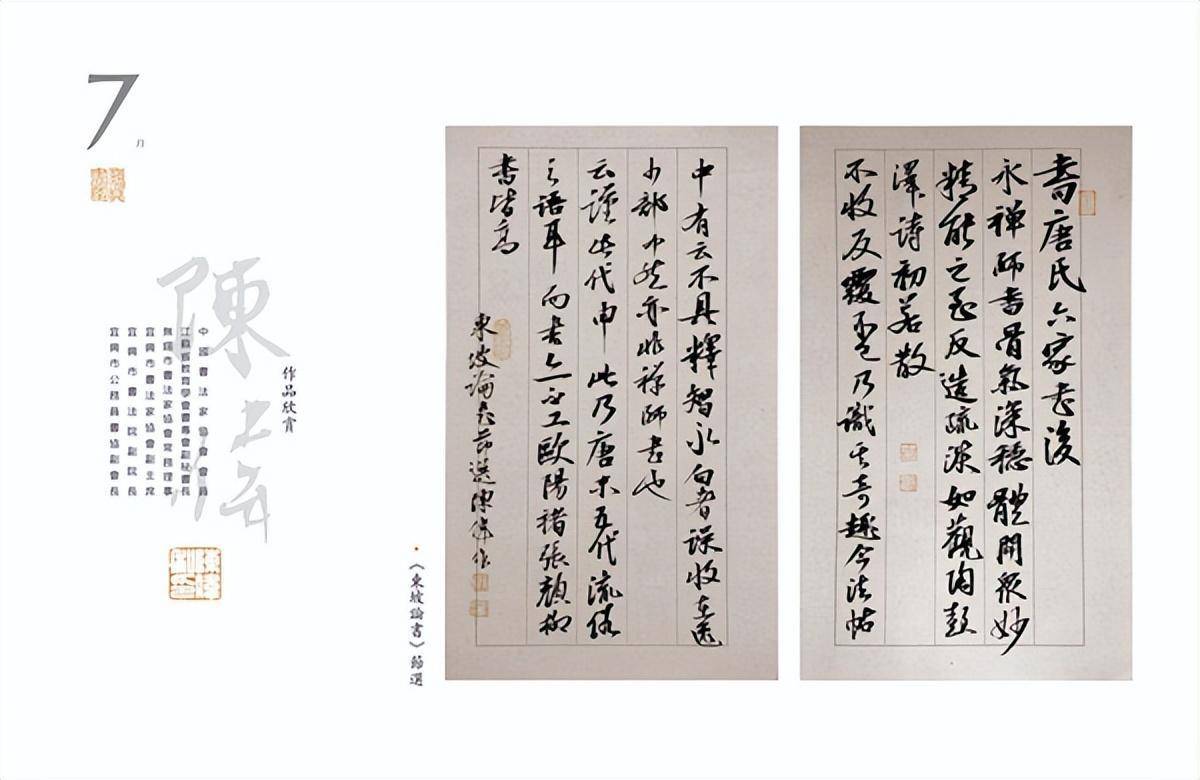 7月
作品欣賞
陳
中國書法家協會會員
江蘇省教育學會書專會副秘書長
無錫市書法家協會常務理事
宜興市書法家協會副主席
宜興市書法院副院長
宜興市公務員書協副會長
·《東坡論書》節選
書唐氏六家書後
永禪師書骨氣深穩體間衆妙
精能之至反造疏淡如觀陶彭
澤詩初若散
不收反覆不已乃識其奇趣今法帖
中有云不具釋智永白者誤收在逸
少部中然亦非禪師書也
云謹此代申此乃唐末五代流俗
之語耳而書亦不工歐陽褚張顏柳
書皆高
東坡論書節選陳偉作